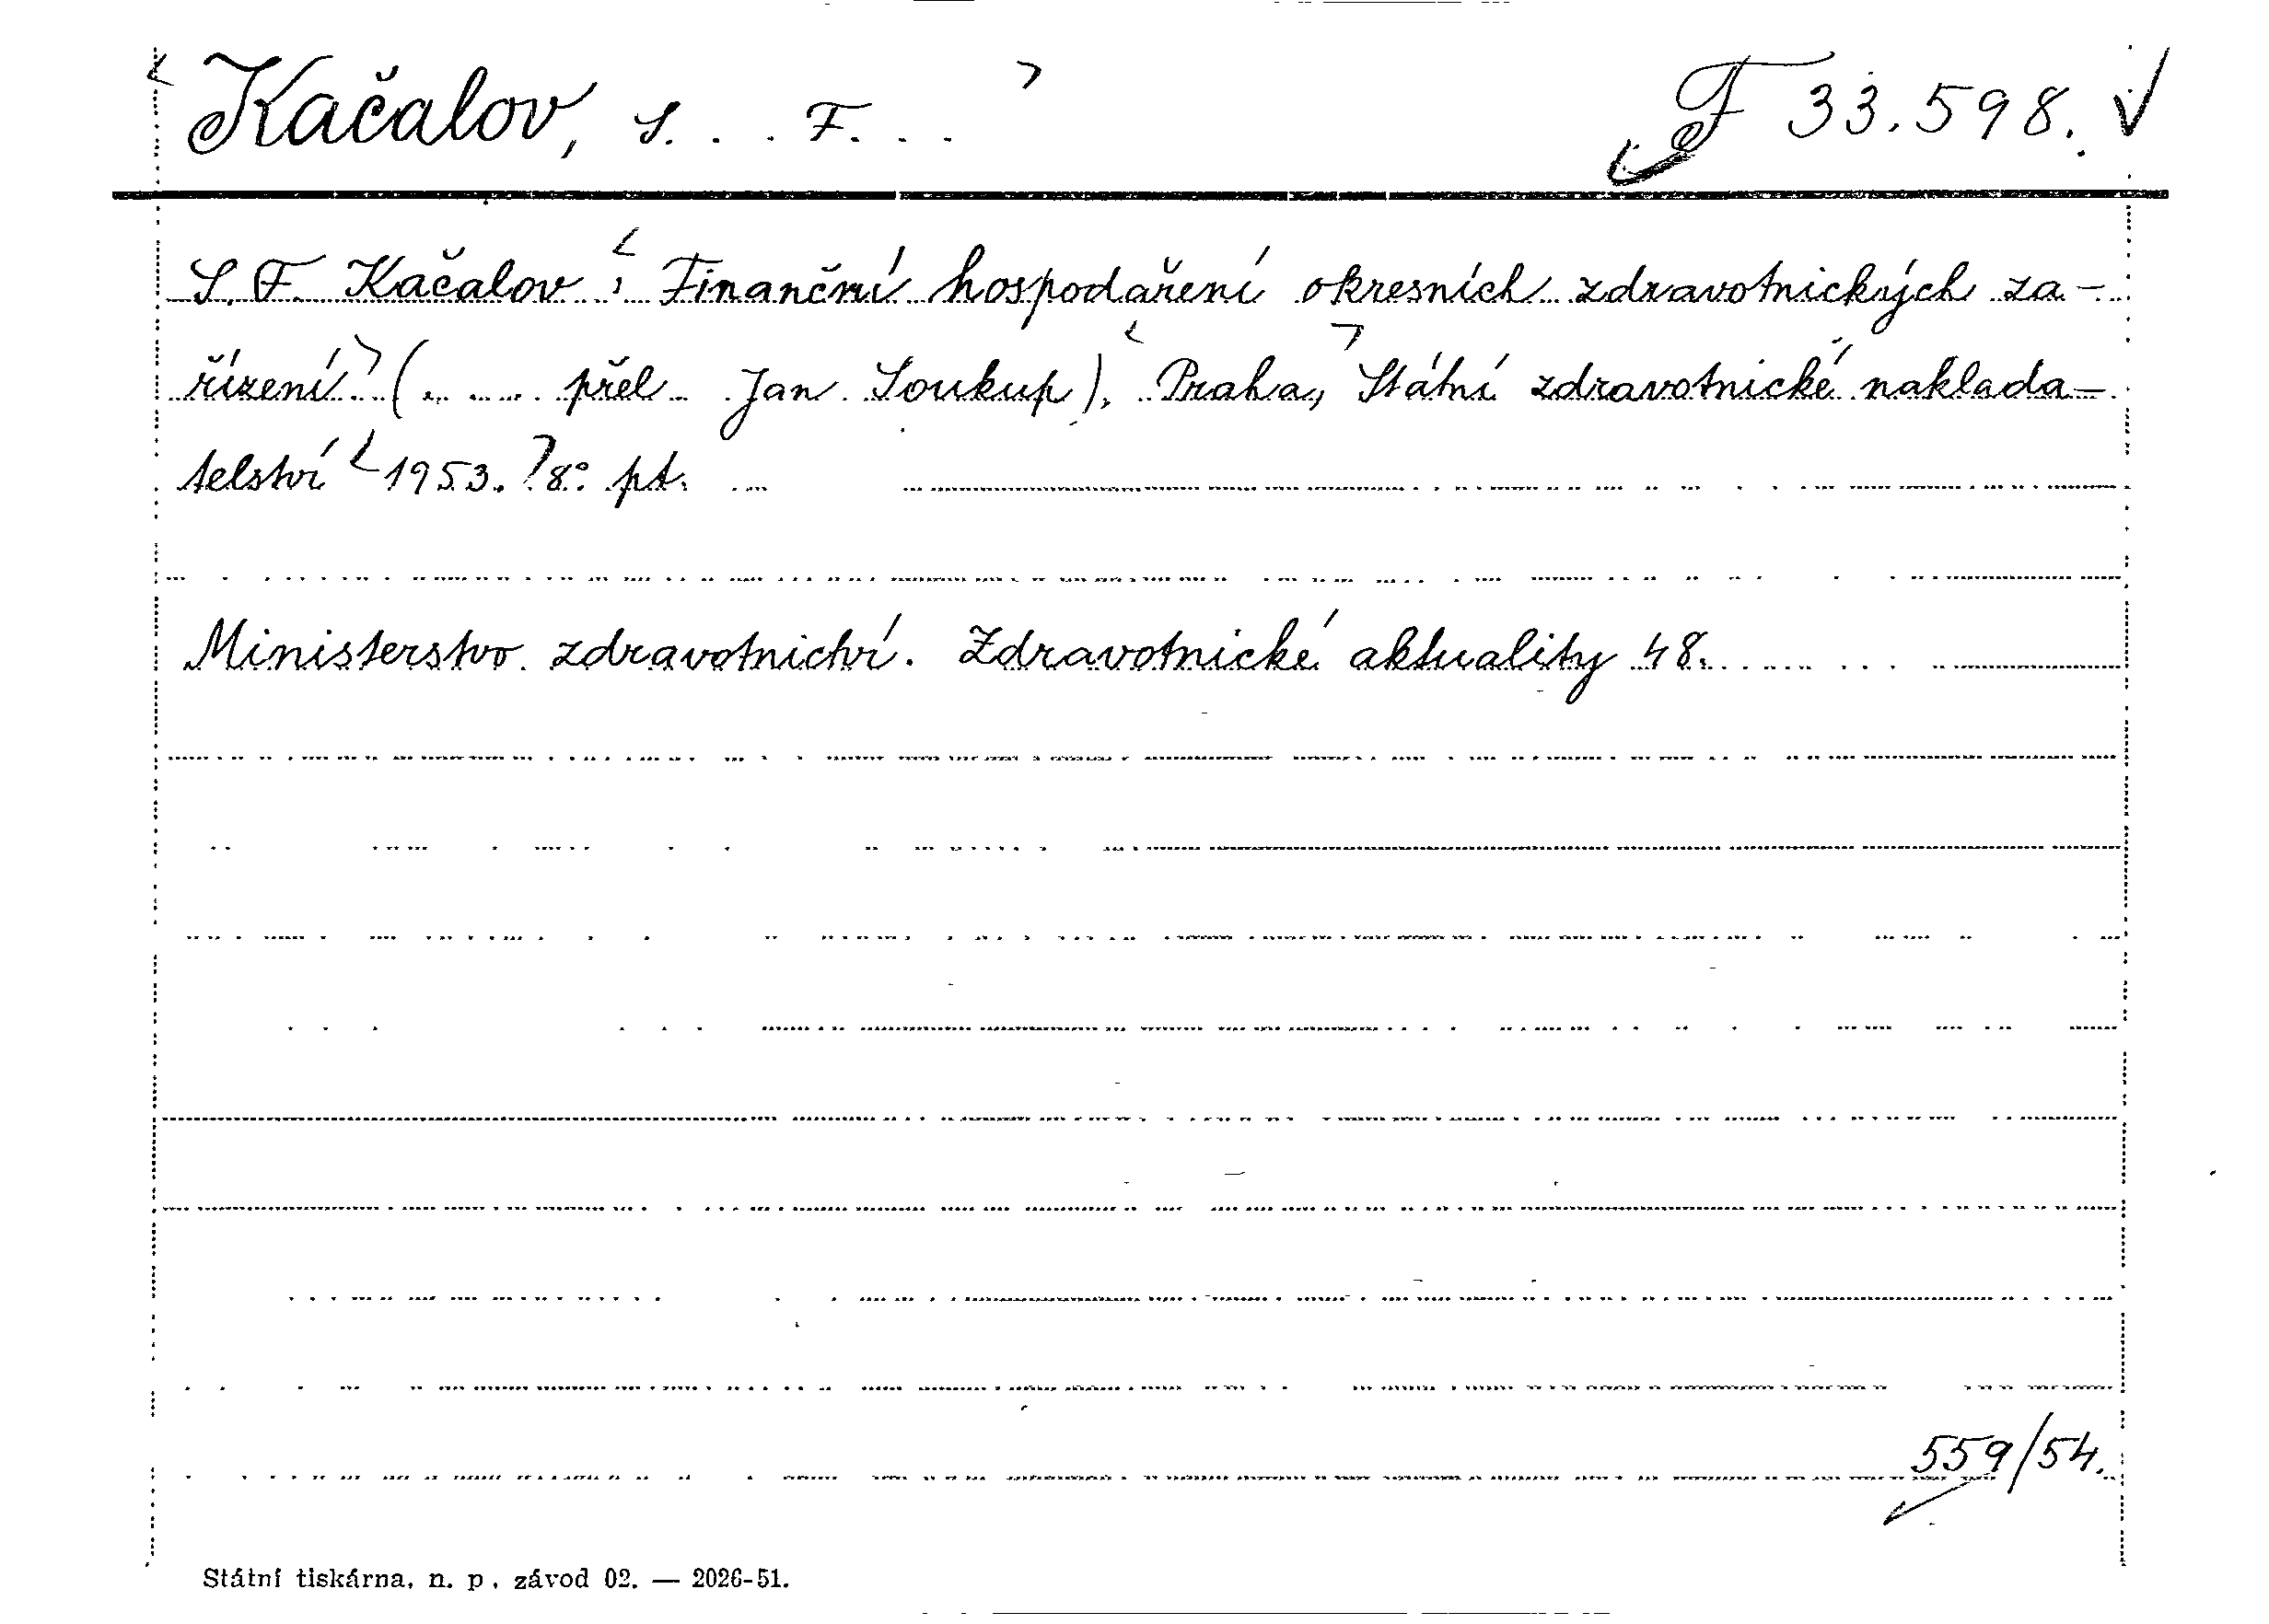 Kačalov, S... F... F 33.598.
S. F. Kačalov: Finanční hospodaření okresních zdravotnických za-
řízení. (... ... přel. Jan Soukup). Praha, Státní zdravotnické naklada-
telství 1953. 8° pt.
Ministerstvo zdravotnictví. Zdravotnické aktuality 48.
559/54.
Státní tiskárna, n. p., závod 02. — 2026-51.